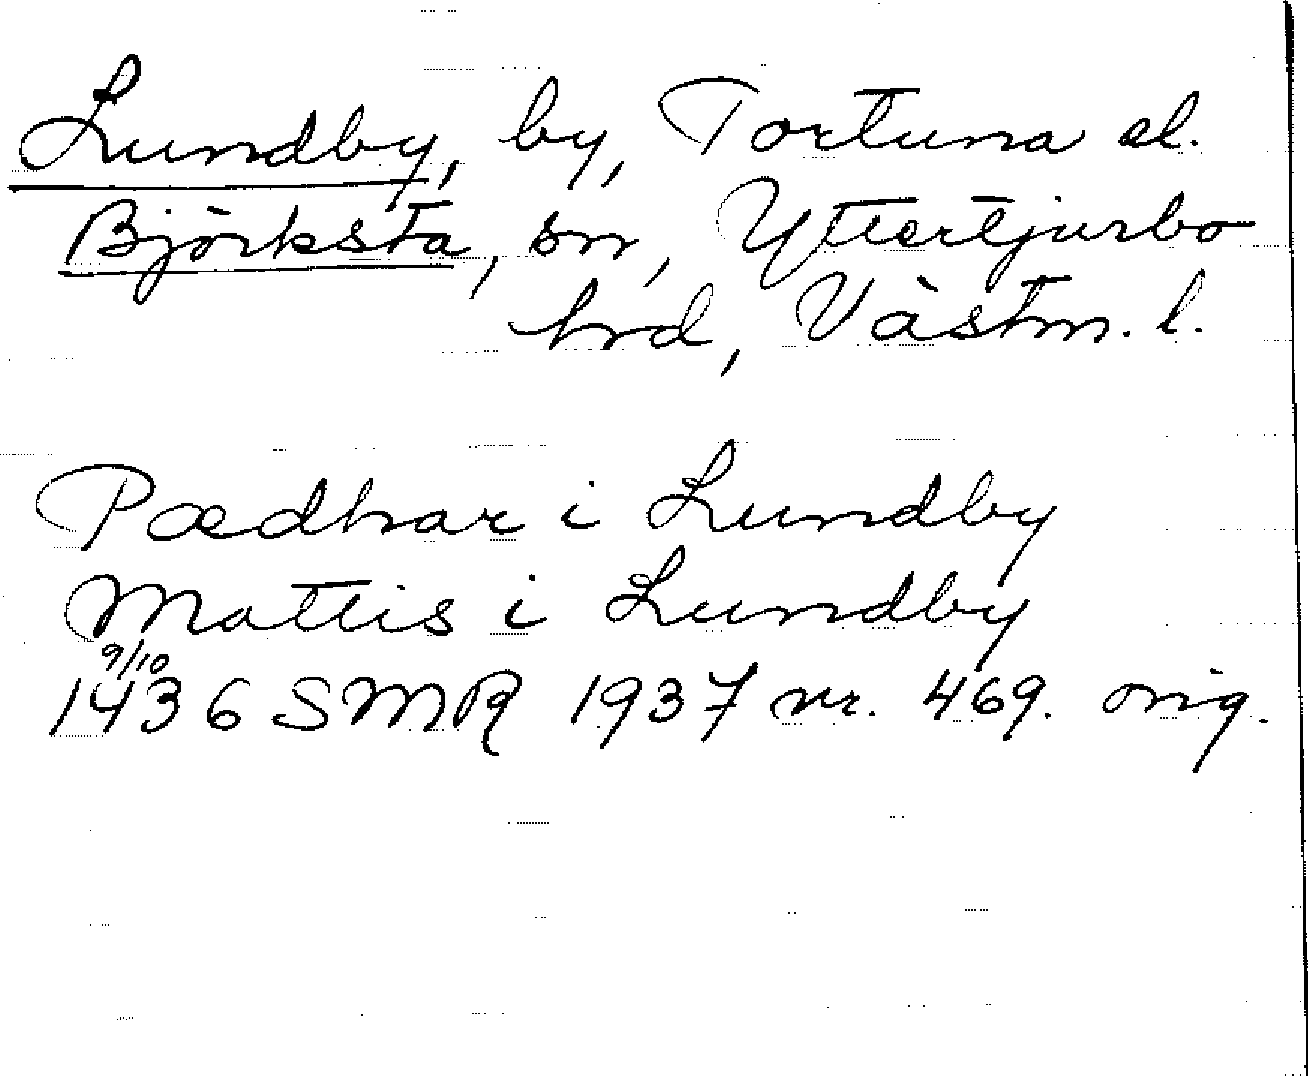 Lundby, by, Tortuna el.
Björksta, sn, Yttertjurbo
hrd, Västm. l.
Pædhar i Lundby
Mattis i Lundby
9/10
1436 SMR 1937 nr. 469. orig.